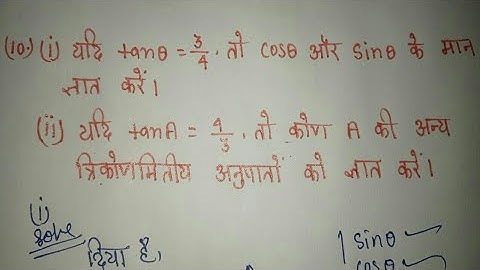 (10.) (i) यदि tanθ = 3/4. तो cosθ और sinθ के मान
ज्ञात करें।
(ii) यदि tanA = 4/3. तो कोण A की अन्य
त्रिकोणमितीय अनुपातों को ज्ञात करें।
(i)
Solve
दिया है,
1 sinθ
cosθ